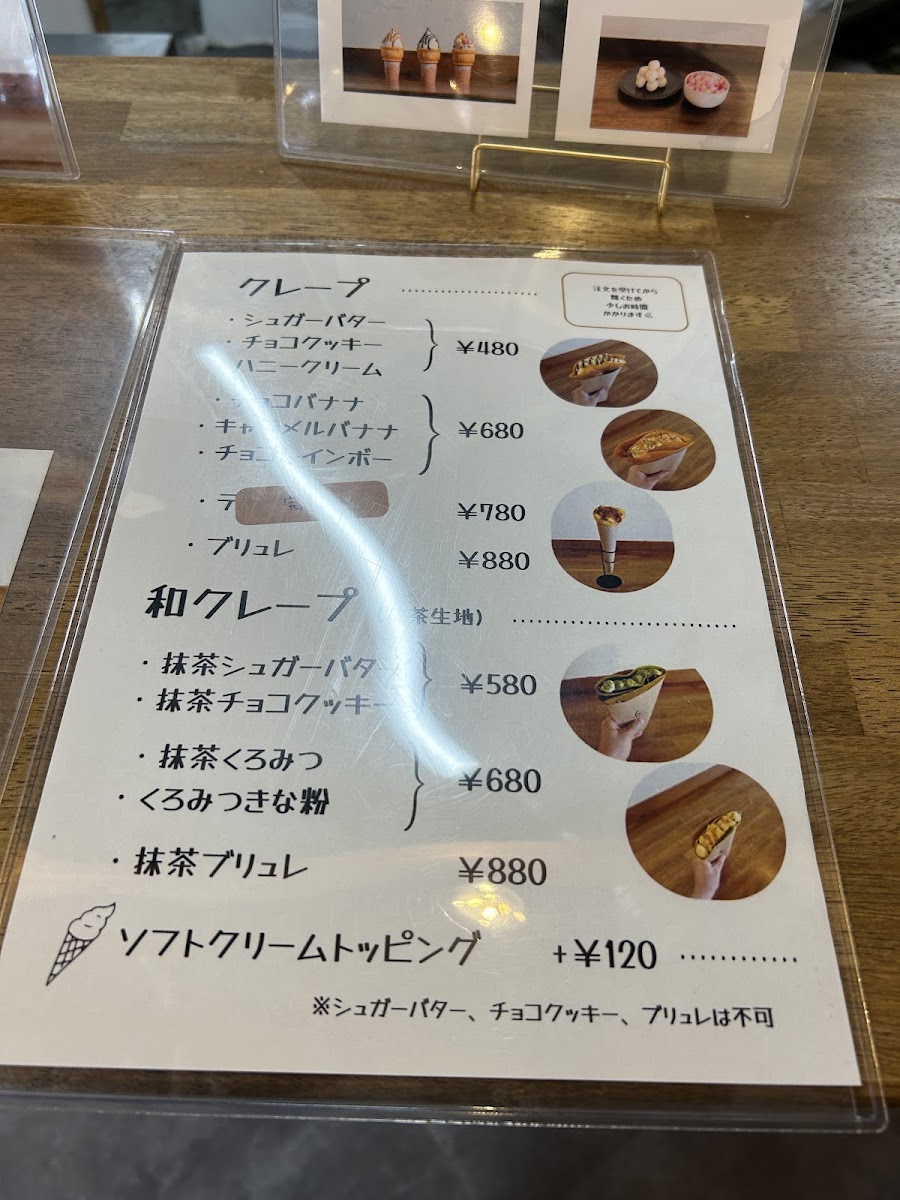 クレープ
注文を受けてから
焼くため
少しお時間
かかります
・シュガーバター
・チョコクッキー
ハニークリーム
¥480
・チョコバナナ
・キャラメルバナナ
・チョコレインボー
¥680
・テ
¥780
・ブリュレ
¥880
和クレープ
茶生地)
・抹茶シュガーバター
・抹茶チョコクッキー
¥580
・抹茶くろみつ
・くろみつきな粉
¥680
・抹茶ブリュレ
¥880
ソフトクリームトッピング +¥120
※シュガーバター、チョコクッキー、ブリュレは不可